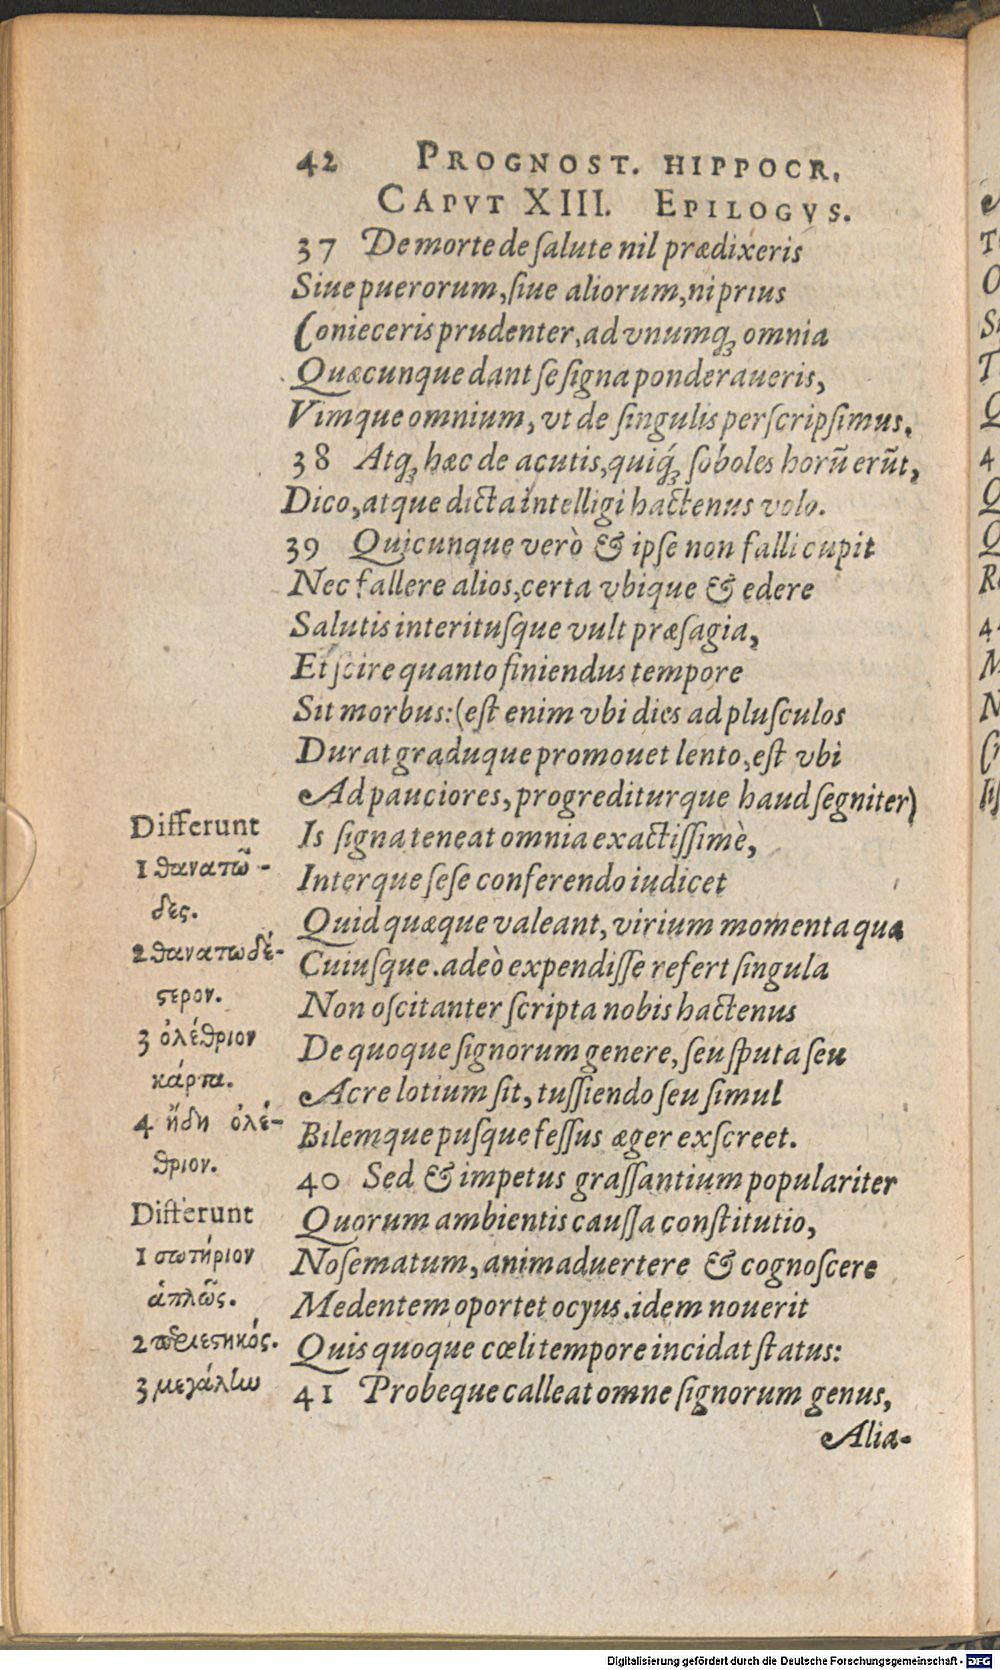 42 PROGNOST. HIPPOCR.
CAPVT XIII. EPILOGVS.
37 De morte de ſalute nil prædixeris
Siue puerorum, ſiue aliorum, ni prius
Conieceris prudenter, ad vnumq́ꝫ omnia
Quæcunque dant ſe ſigna ponderaueris,
Vimque omnium, vt de ſingulis perſcripſimus.
38 Atqꝫ hæc de acutis, quiq́ꝫ ſoboles horũ erũt,
Dico, atque dicta intelligi hactenus volo.
39 Quicunque verò & ipſe non falli cupit
Nec fallere alios, certa vbique & edere
Salutis interituſque vult præſagia,
Et ſcire quanto finiendus tempore
Sit morbus: (eſt enim vbi dies ad pluſculos
Durat graduque promouet lento, eſt vbi
Ad pauciores, progrediturque haud ſegniter)
Is ſigna teneat omnia exactiſſimè,
Interque ſeſe conferendo iudicet
Quid quæque valeant, virium momenta qua
Cuiuſque. adeò expendiſſe refert ſingula
Non oſcitanter ſcripta nobis hactenus
De quoque ſignorum genere, ſeu ſputa ſeu
Acre lotium ſit, tuſſiendo ſeu ſimul
Bilemque puſque feſſus æger exſcreet.
40 Sed & impetus graſſantium populariter
Quorum ambientis cauſſa conſtitutio,
Noſematum, animaduertere & cognoſcere
Medentem oportet ocyus. idem nouerit
Quis quoque cœli tempore incidat ſtatus:
41 Probeque calleat omne ſignorum genus,
Alia-
Differunt
1 θανατῶ-
δες.
2 θανατωδέ-
ϛερον.
3 ὀλέθριον
κάρτα.
4 ἤδη ὀλέ-
θριον.
Differunt
1 σωτήριον
ἁπλῶς.
2 περιεϛηκός.
3 μεγάλω
Digitalisierung gefördert durch die Deutsche Forschungsgemeinschaft - DFG